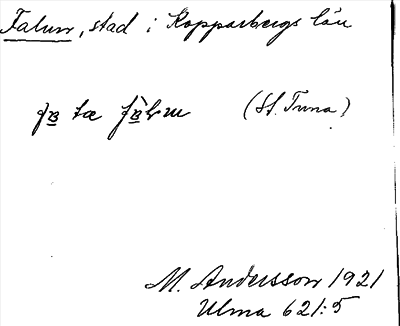 Falun, stad i Kopparbergs län
(St. Tuna)
M. Andersson 1921
Ulma 621:5